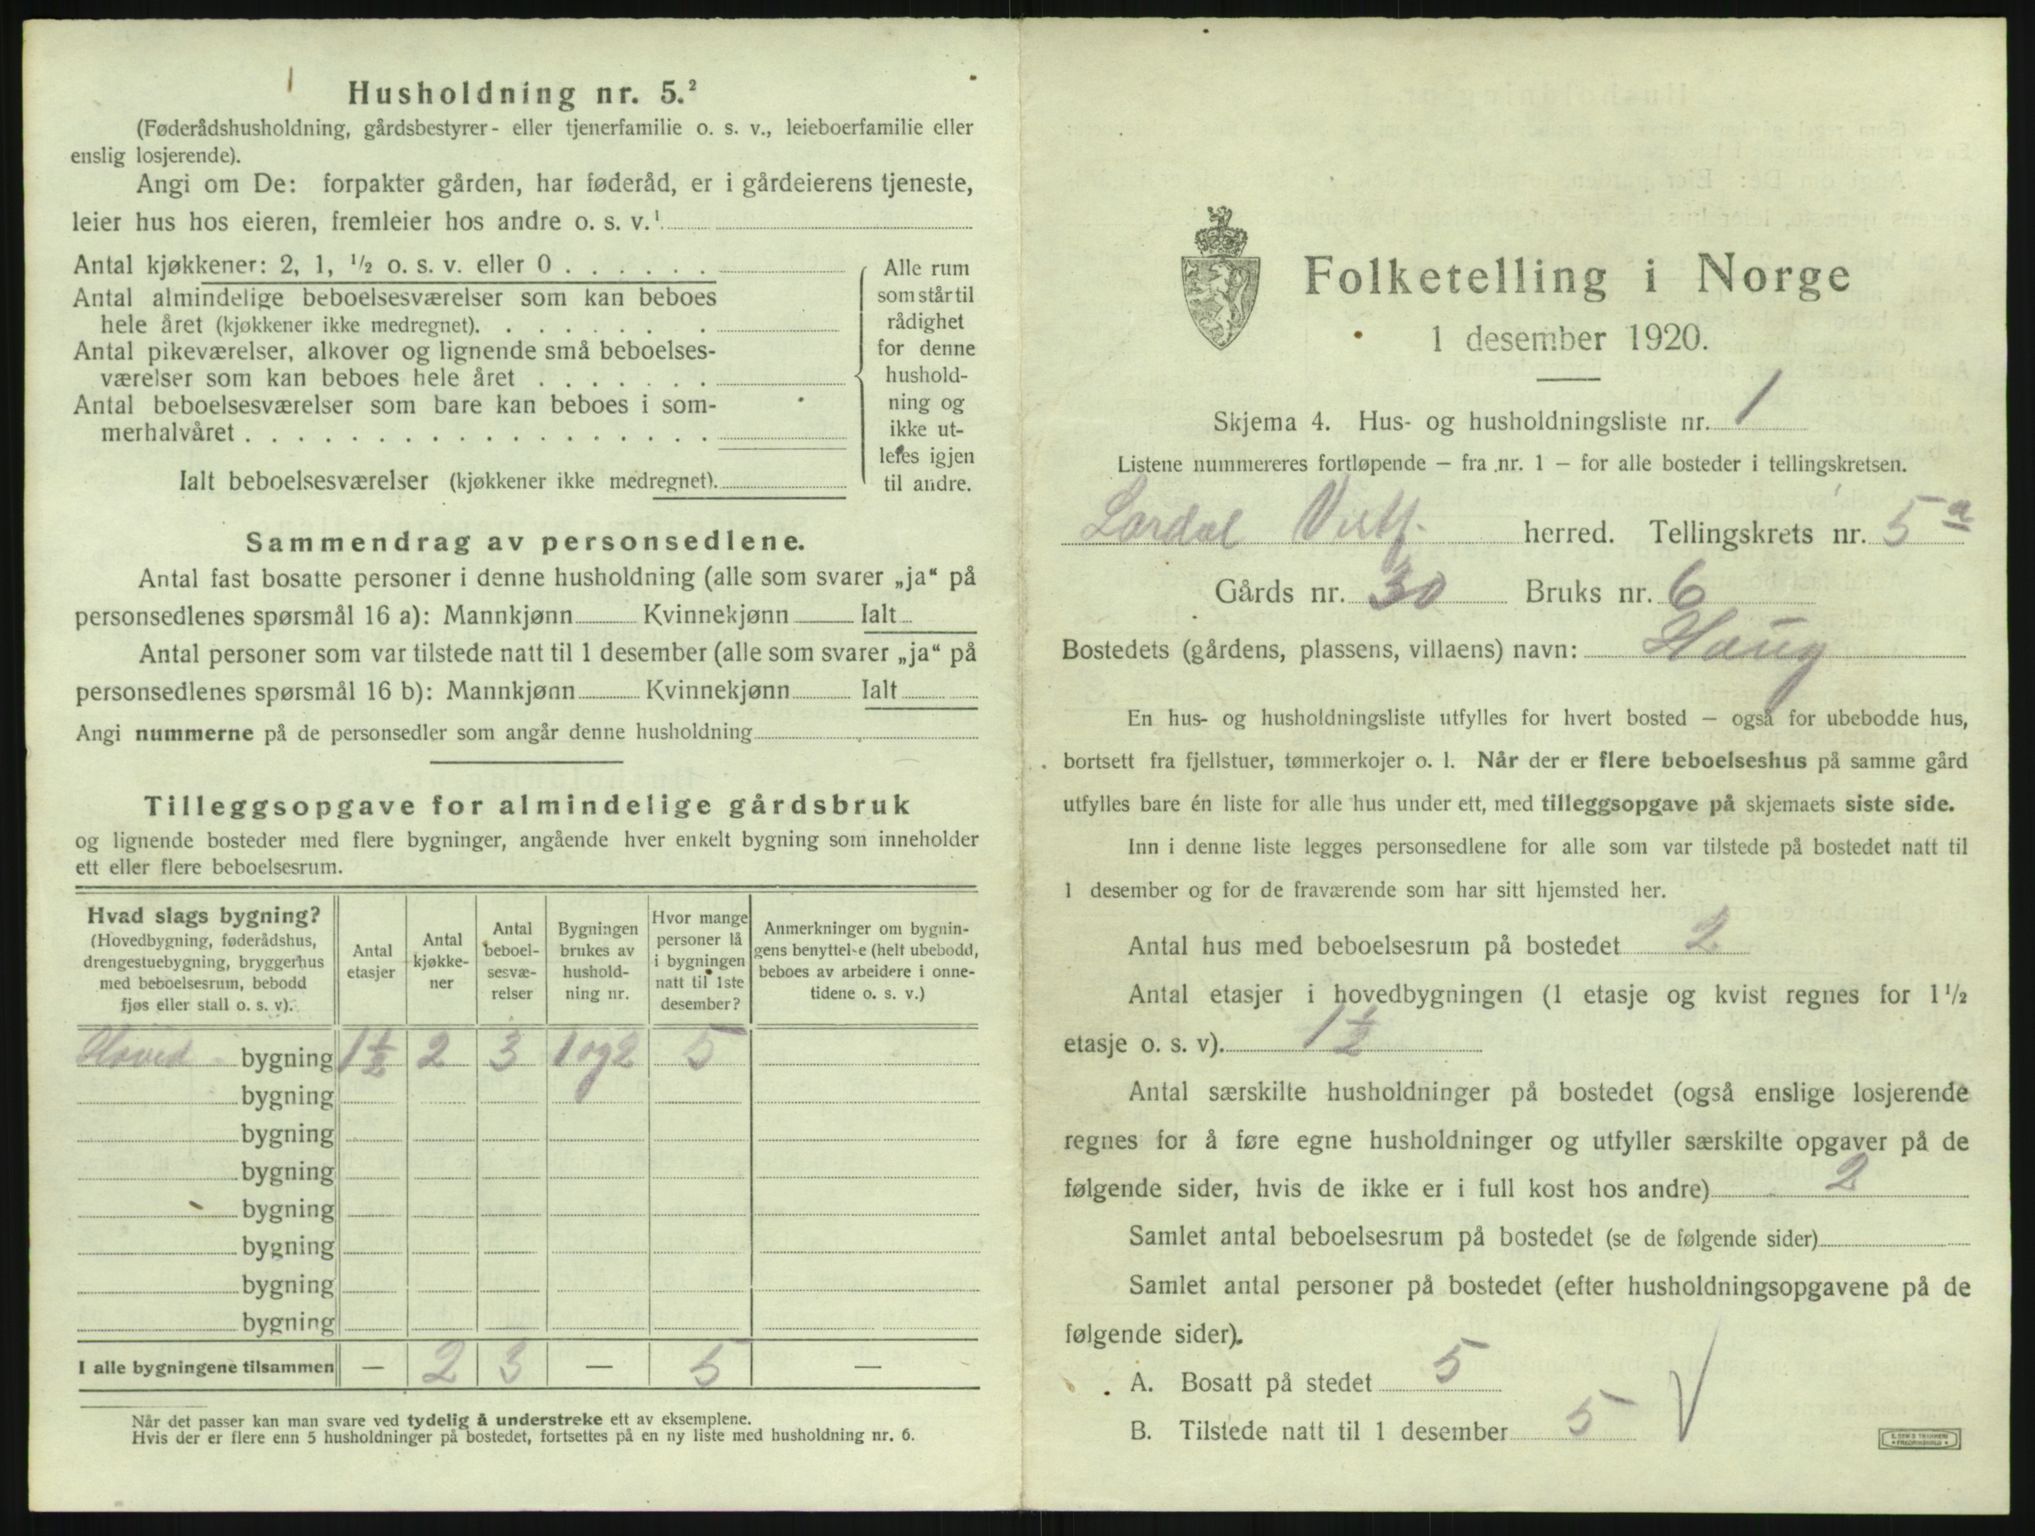 Husholdning nr. 5.²
(Føderådshusholdning, gårdsbestyrer- eller tjenerfamilie o. s. v., leieboerfamilie eller
enslig losjerende).
Angi om De: forpakter gården, har føderåd, er i gårdeierens tjeneste,
leier hus hos eieren, fremleier hos andre o. s. v.¹
Antal kjøkkener: 2, 1, ½ o. s. v. eller 0 . . . . . .
Antal almindelige beboelsesværelser som kan beboes
hele året (kjøkkener ikke medregnet). . . . . . . .
Antal pikeværelser, alkover og lignende små beboelses-
værelser som kan beboes hele året . . . . . . .
Antal beboelsesværelser som bare kan beboes i som-
merhalvåret . . . . . . . . . . . . . . . . . .
Alle rum
som står til
rådighet
for denne
hushold-
ning og
ikke ut-
leies igjen
til andre.
Ialt beboelsesværelser (kjøkkener ikke medregnet).
Sammendrag av personsedlene.
Antal fast bosatte personer i denne husholdning (alle som svarer „ja“ på
personsedlenes spørsmål 16 a): Mannkjønn Kvinnekjønn Ialt
Antal personer som var tilstede natt til 1 desember (alle som svarer „ja“ på
personsedlenes spørsmål 16 b): Mannkjønn Kvinnekjønn Ialt
Angi nummerne på de personsedler som angår denne husholdning
Tilleggsopgave for almindelige gårdsbruk
og lignende bosteder med flere bygninger, angående hver enkelt bygning som inneholder
ett eller flere beboelsesrum.
Hvad slags bygning?
(Hovedbygning, føderådshus,
drengestuebygning, bryggerhus
med beboelsesrum, bebodd
fjøs eller stall o. s. v).
Antal
etasjer
Antal
kjøkke-
ner
Antal
beboel-
sesvæ-
relser
Bygningen
brukes av
hushold-
ning nr.
Hvor mange
personer lå
i bygningen
natt til 1ste
desember?
Anmerkninger om bygnin-
gens benyttelse (helt ubebodd,
beboes av arbeidere i onne-
tidene o. s. v.)
Hoved bygning 1½ 2 3 1 og 2 5
bygning
bygning
bygning
bygning
bygning
bygning
bygning
I alle bygningene tilsammen — 2 3 — 5 —
Når det passer kan man svare ved tydelig å understreke ett av eksemplene.
Hvis der er flere enn 5 husholdninger på bostedet, fortsettes på en ny liste med husholdning nr. 6.
Folketelling i Norge
1 desember 1920.
Skjema 4. Hus- og husholdningsliste nr. 1
Listene nummereres fortløpende — fra nr. 1 — for alle bosteder i tellingskretsen.
Lardal Vestf. herred. Tellingskrets nr. 5 a
Gårds nr. 30 Bruks nr. 6
Bostedets (gårdens, plassens, villaens) navn: Haug
En hus- og husholdningsliste utfylles for hvert bosted — også for ubebodde hus,
bortsett fra fjellstuer, tømmerkojer o. l. Når der er flere beboelseshus på samme gård
utfylles bare én liste for alle hus under ett, med tilleggsopgave på skjemaets siste side.
Inn i denne liste legges personsedlene for alle som var tilstede på bostedet natt til
1 desember og for de fraværende som har sitt hjemsted her.
Antal hus med beboelsesrum på bostedet 2
Antal etasjer i hovedbygningen (1 etasje og kvist regnes for 1½
etasje o. s. v). 1½
Antal særskilte husholdninger på bostedet (også enslige losjerende
regnes for å føre egne husholdninger og utfyller særskilte opgaver på de
følgende sider, hvis de ikke er i full kost hos andre) 2
Samlet antal beboelsesrum på bostedet (se de følgende sider)
Samlet antal personer på bostedet (efter husholdningsopgavene på de
følgende sider).
A. Bosatt på stedet 5
B. Tilstede natt til 1 desember 5